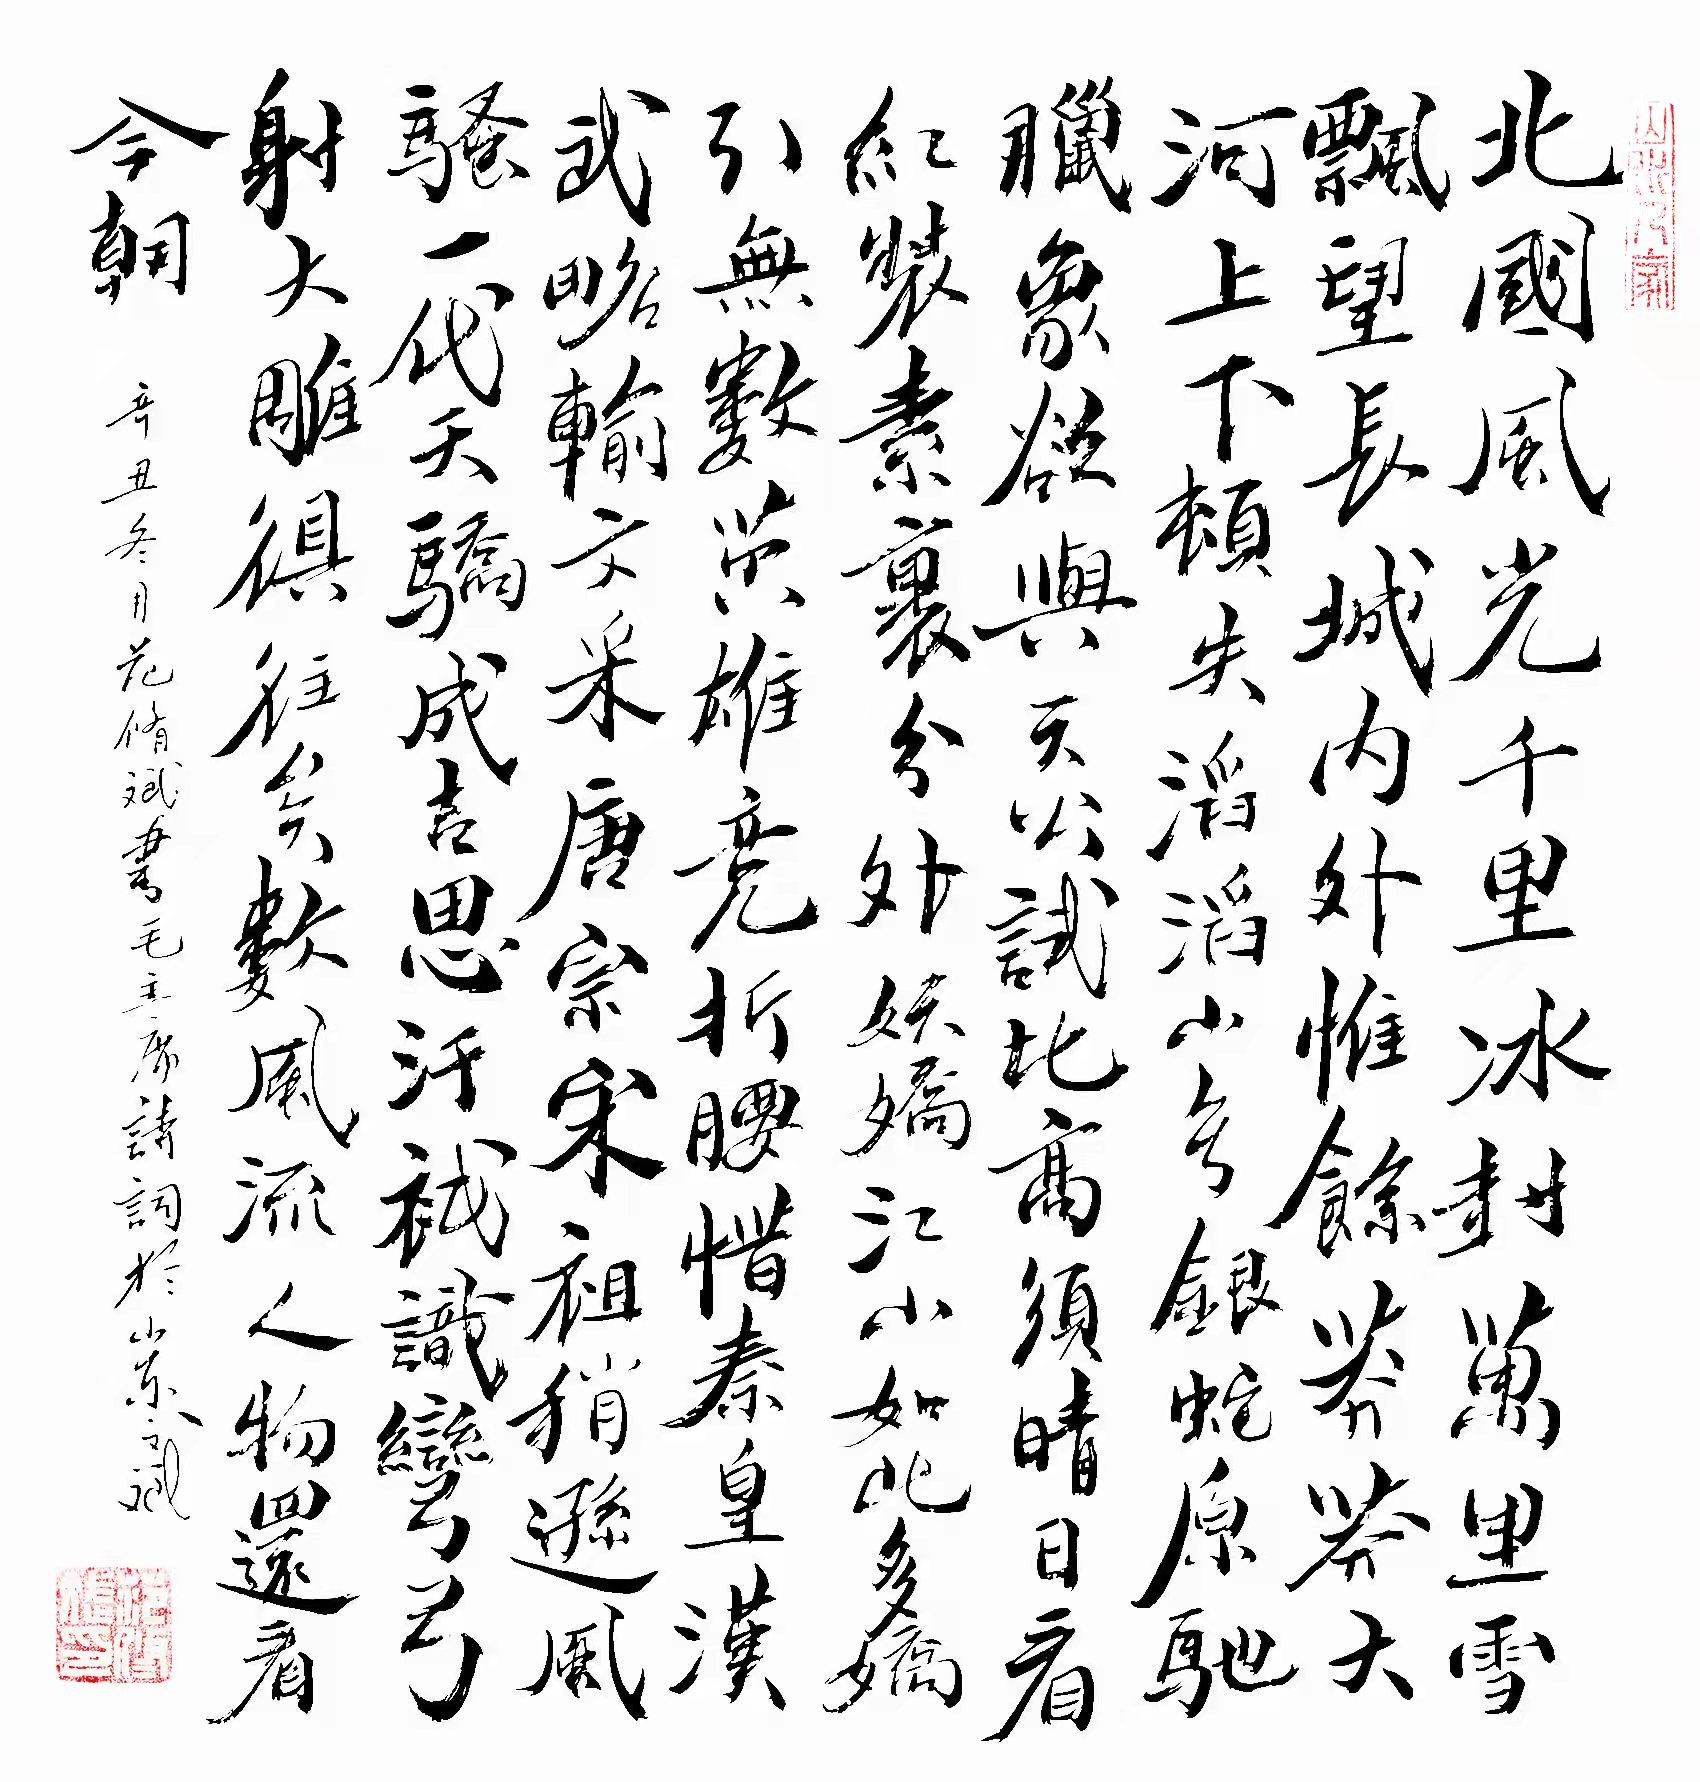 北國風光千里冰封萬里雪
飄望長城内外惟餘莽莽大
河上下頓失滔滔山舞銀蛇原馳
臘象欲與天公試比高須晴日看
紅裝素裹分外妖嬌江山如此多嬌
引無數英雄竞折腰惜秦皇漢
武略輸文采唐宗宋祖稍遜風
騷一代天驕成吉思汗祇識彎弓
射大雕俱往矣數風流人物還看
今朝
辛丑冬月范脩斌書毛主席詩詞於山東